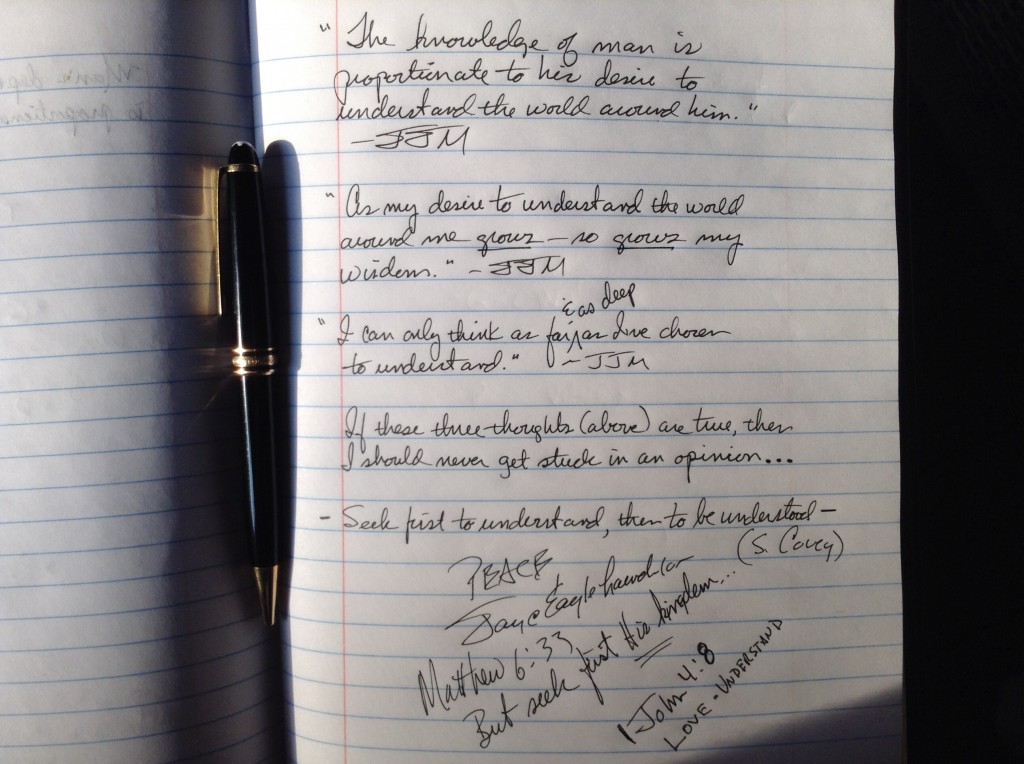 "The knowledge of man is
proportionate to his desire to
understand the world around him."
—JJM
"As my desire to understand the world
around me grows — so grows my
wisdom." - JJM
& as deep
"I can only think as far as I've chosen
to understand." - JJM
If these three thoughts (above) are true, then
I should never get stuck in an opinion...
- Seek first to understand, then to be understood -
(S. Covey)
PEACE
Matthew 6:33
But seek first His kingdom...
1 John 4:8
LOVE - UNDERSTAND
Man's
is proportion